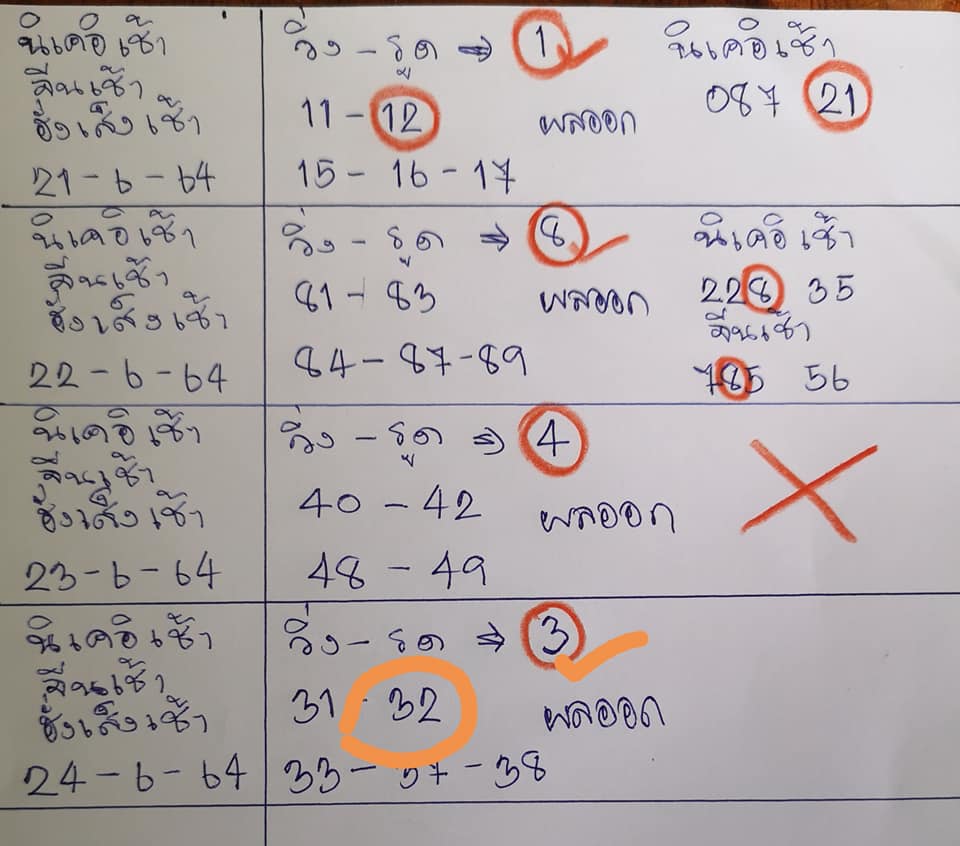 นิเคอิเช้า
จีนเช้า
ฮั่งเส็งเช้า
21-6-64
วิ่ง - รูด ⇒ 1
11 - 12 ผลออก
15 - 16 - 17
นิเคอิเช้า
087 21
นิเคอิเช้า
จีนเช้า
ฮั่งเส็งเช้า
22-6-64
วิ่ง - รูด ⇒ 8
81 - 83 ผลออก
84 - 87 - 89
นิเคอิเช้า
228 35
จีนเช้า
785 56
นิเคอิเช้า
จีนเช้า
ฮั่งเส็งเช้า
23-6-64
วิ่ง - รูด ⇒ 4
40 - 42 ผลออก
48 - 49
นิเคอิเช้า
จีนเช้า
ฮั่งเส็งเช้า
24-6-64
วิ่ง - รูด ⇒ 3
31 - 32 ผลออก
33 - 37 - 38